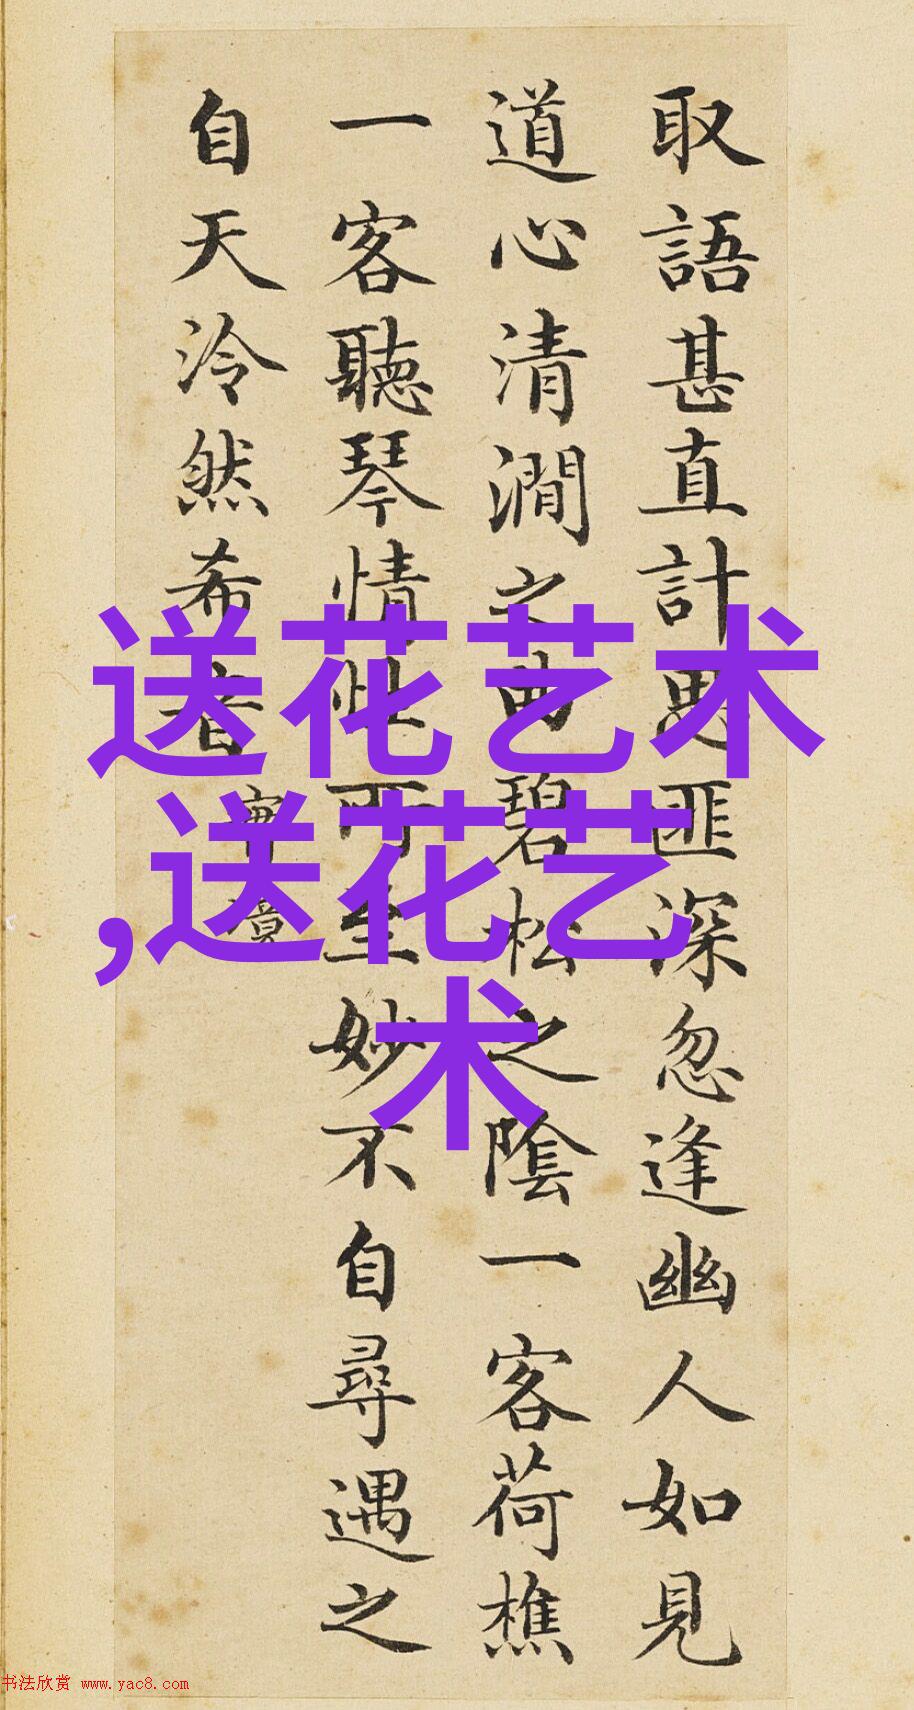 取語甚直計思匪深忽逢幽人如見
道心清澗之曲碧松之陰一客荷樵
一客聽琴情性所至妙不自尋遇之
自天泠然希音
實境
送花艺术
,送花艺
术
书法欣赏 www.yac8.com